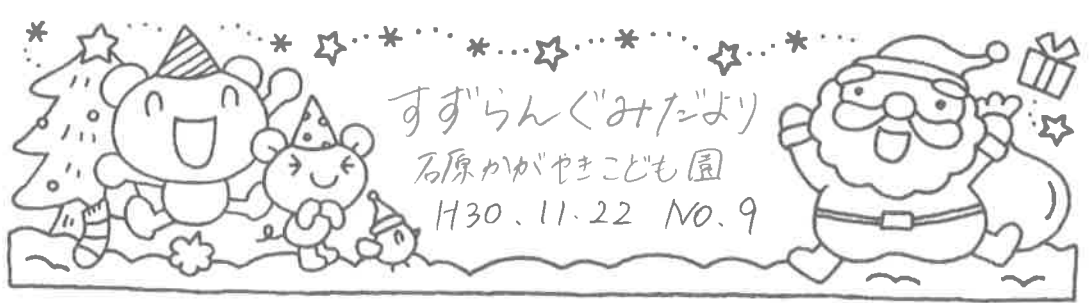 すずらんぐみだより
石原かがやきこども園
H30.11.22 NO.9